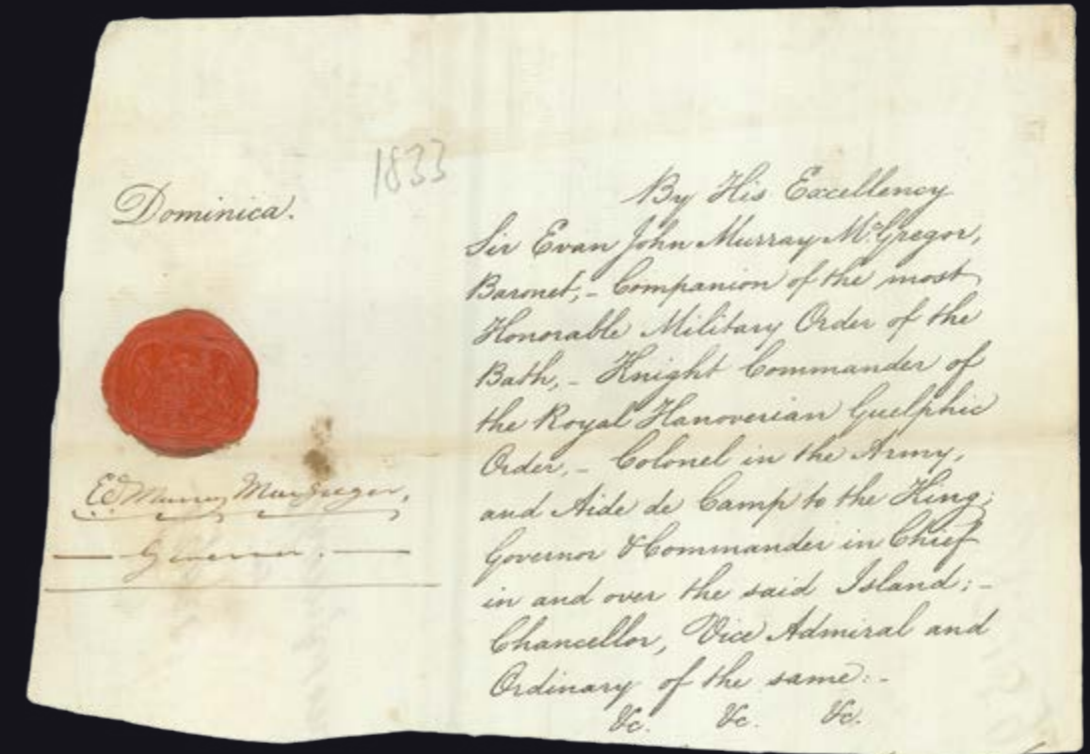 1833
Dominica.
By His Excellency
Sir Evan John Murray McGregor,
Baronet,- Companion of the most
Honorable Military Order of the
Bath,- Knight Commander of
the Royal Hanoverian Guelphic
Order,- Colonel in the Army,
and Aide de Camp to the King;
Governor & Commander in Chief
in and over the said Island:-
Chancellor, Vice Admiral and
Ordinary of the same:-
&c. &c. &c.
Murray MacGregor,
Governor.